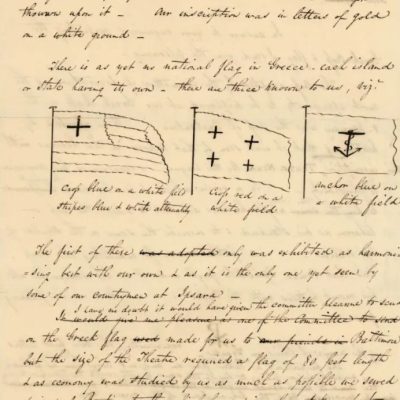 thrown upon it - Our inscription was in letters of gold
on a white ground -
There is as yet no national flag in Greece - each island
or State having its own - there are three known to us, viz.
cross blue on a white field
stripes blue & white alternately
cross red on a
white field
anchor blue on
a white field
The first of these was adopted only was exhibited as harmoni-
=sing best with our own & as it is the only one yet seen by
some of our countrymen at Ipsara -
I have no doubt it would have given the committee pleasure to send
It would give me pleasure as one of the Committee to send
on the Greek flag used made for us to our friends in Baltimore
but the size of the Theatre required a flag of 80 feet length
& as economy was studied by us as much as possible we sewed